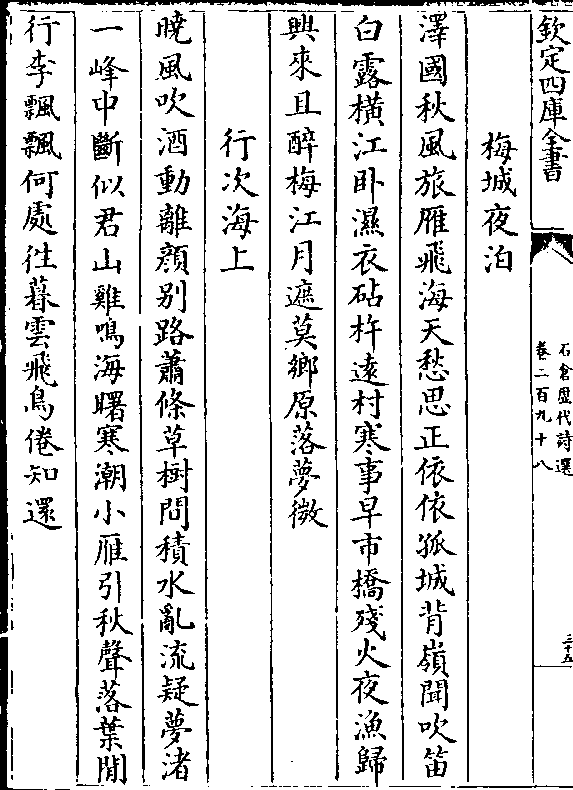 欽定四庫全書
石倉歴代詩選
卷二百九十八
三十五
梅城夜泊
澤國秋風旅雁飛海天愁思正依依孤城背嶺聞吹笛
白露橫江卧濕衣砧杵逺村寒事早市橋殘火夜漁歸
興來且醉梅江月遮莫鄉原落夢微
行次海上
曉風吹酒動離顔别路蕭條草樹間積水亂流疑夢渚
一峰中斷似君山雞鳴海曙寒潮小雁引秋聲落葉閒
行李飄飄何處徃暮雲飛鳥倦知還